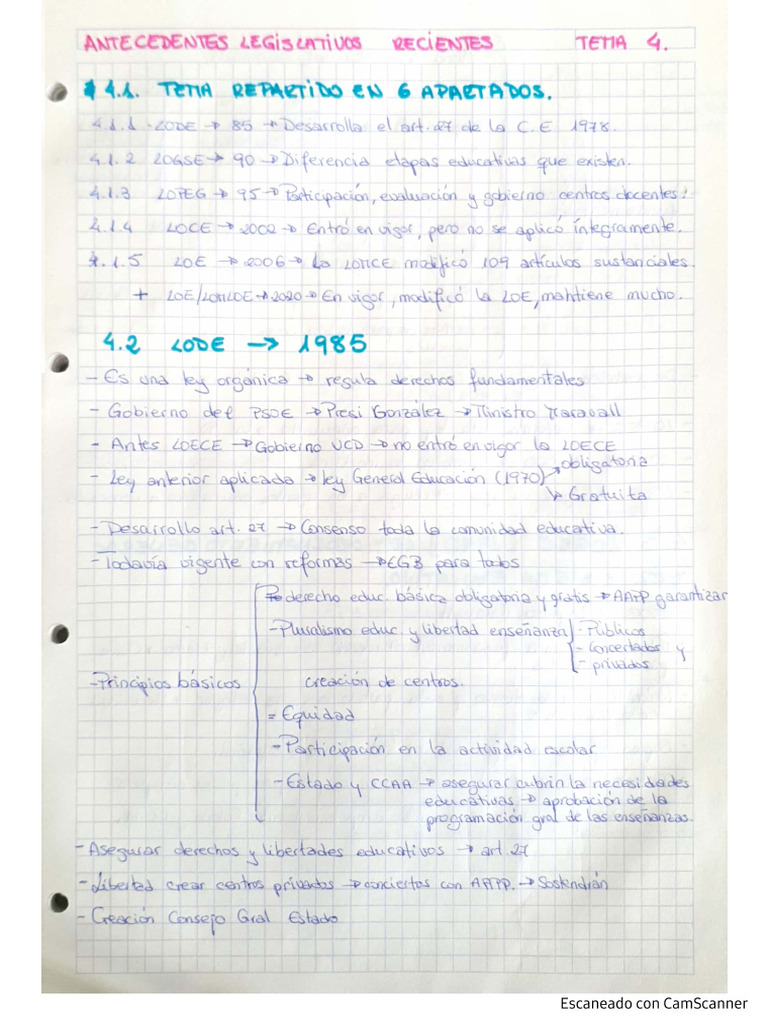 ANTECEDENTES LEGISLATIVOS RECIENTES TEMA 4.
4.1. TEMA REPARTIDO EN 6 APARTADOS.
4.1.1 LODE → 85 → Desarrolla el art. 27 de la C.E 1978.
4.1.2 LOGSE → 90 → Diferencia etapas educativas que existen.
4.1.3 LOPEG → 95 → Participación, evaluación y gobierno centros docentes.
4.1.4 LOCE → 2002 → Entró en vigor, pero no se aplicó íntegramente.
4.1.5 LOE → 2006 → La LOMCE modificó 109 artículos sustanciales.
+ LOE/LOMLOE → 2020 → En vigor, modificó la LOE, mantiene mucho.
4.2 LODE → 1985
- Es una ley orgánica → regula derechos fundamentales
- Gobierno del PSOE → Presi González → Ministro Maravall
- Antes LOECE → Gobierno UCD → no entró en vigor la LOECE
- Ley anterior aplicada → ley General Educación (1970) → obligatoria
→ Gratuita
- Desarrollo art. 27 → Consenso toda la comunidad educativa.
- Todavía vigente con reformas → EGB para todos
- Principios básicos
- derecho educ. básica obligatoria y gratis → AAPP garantizar
- Pluralismo educ. y libertad enseñanza - Públicos
- Concertados y
- privados
creación de centros.
= Equidad
- Participación en la actividad escolar
- Estado y CCAA → asegurar cubrin la necesidades
educativas → aprobación de la
programación gral de las enseñanzas.
- Asegurar derechos y libertades educativos → art. 27
- Libertad crear centros privados → conciertos con AAPP. → Sostendrán
- Creación Consejo Gral Estado
Escaneado con CamScanner